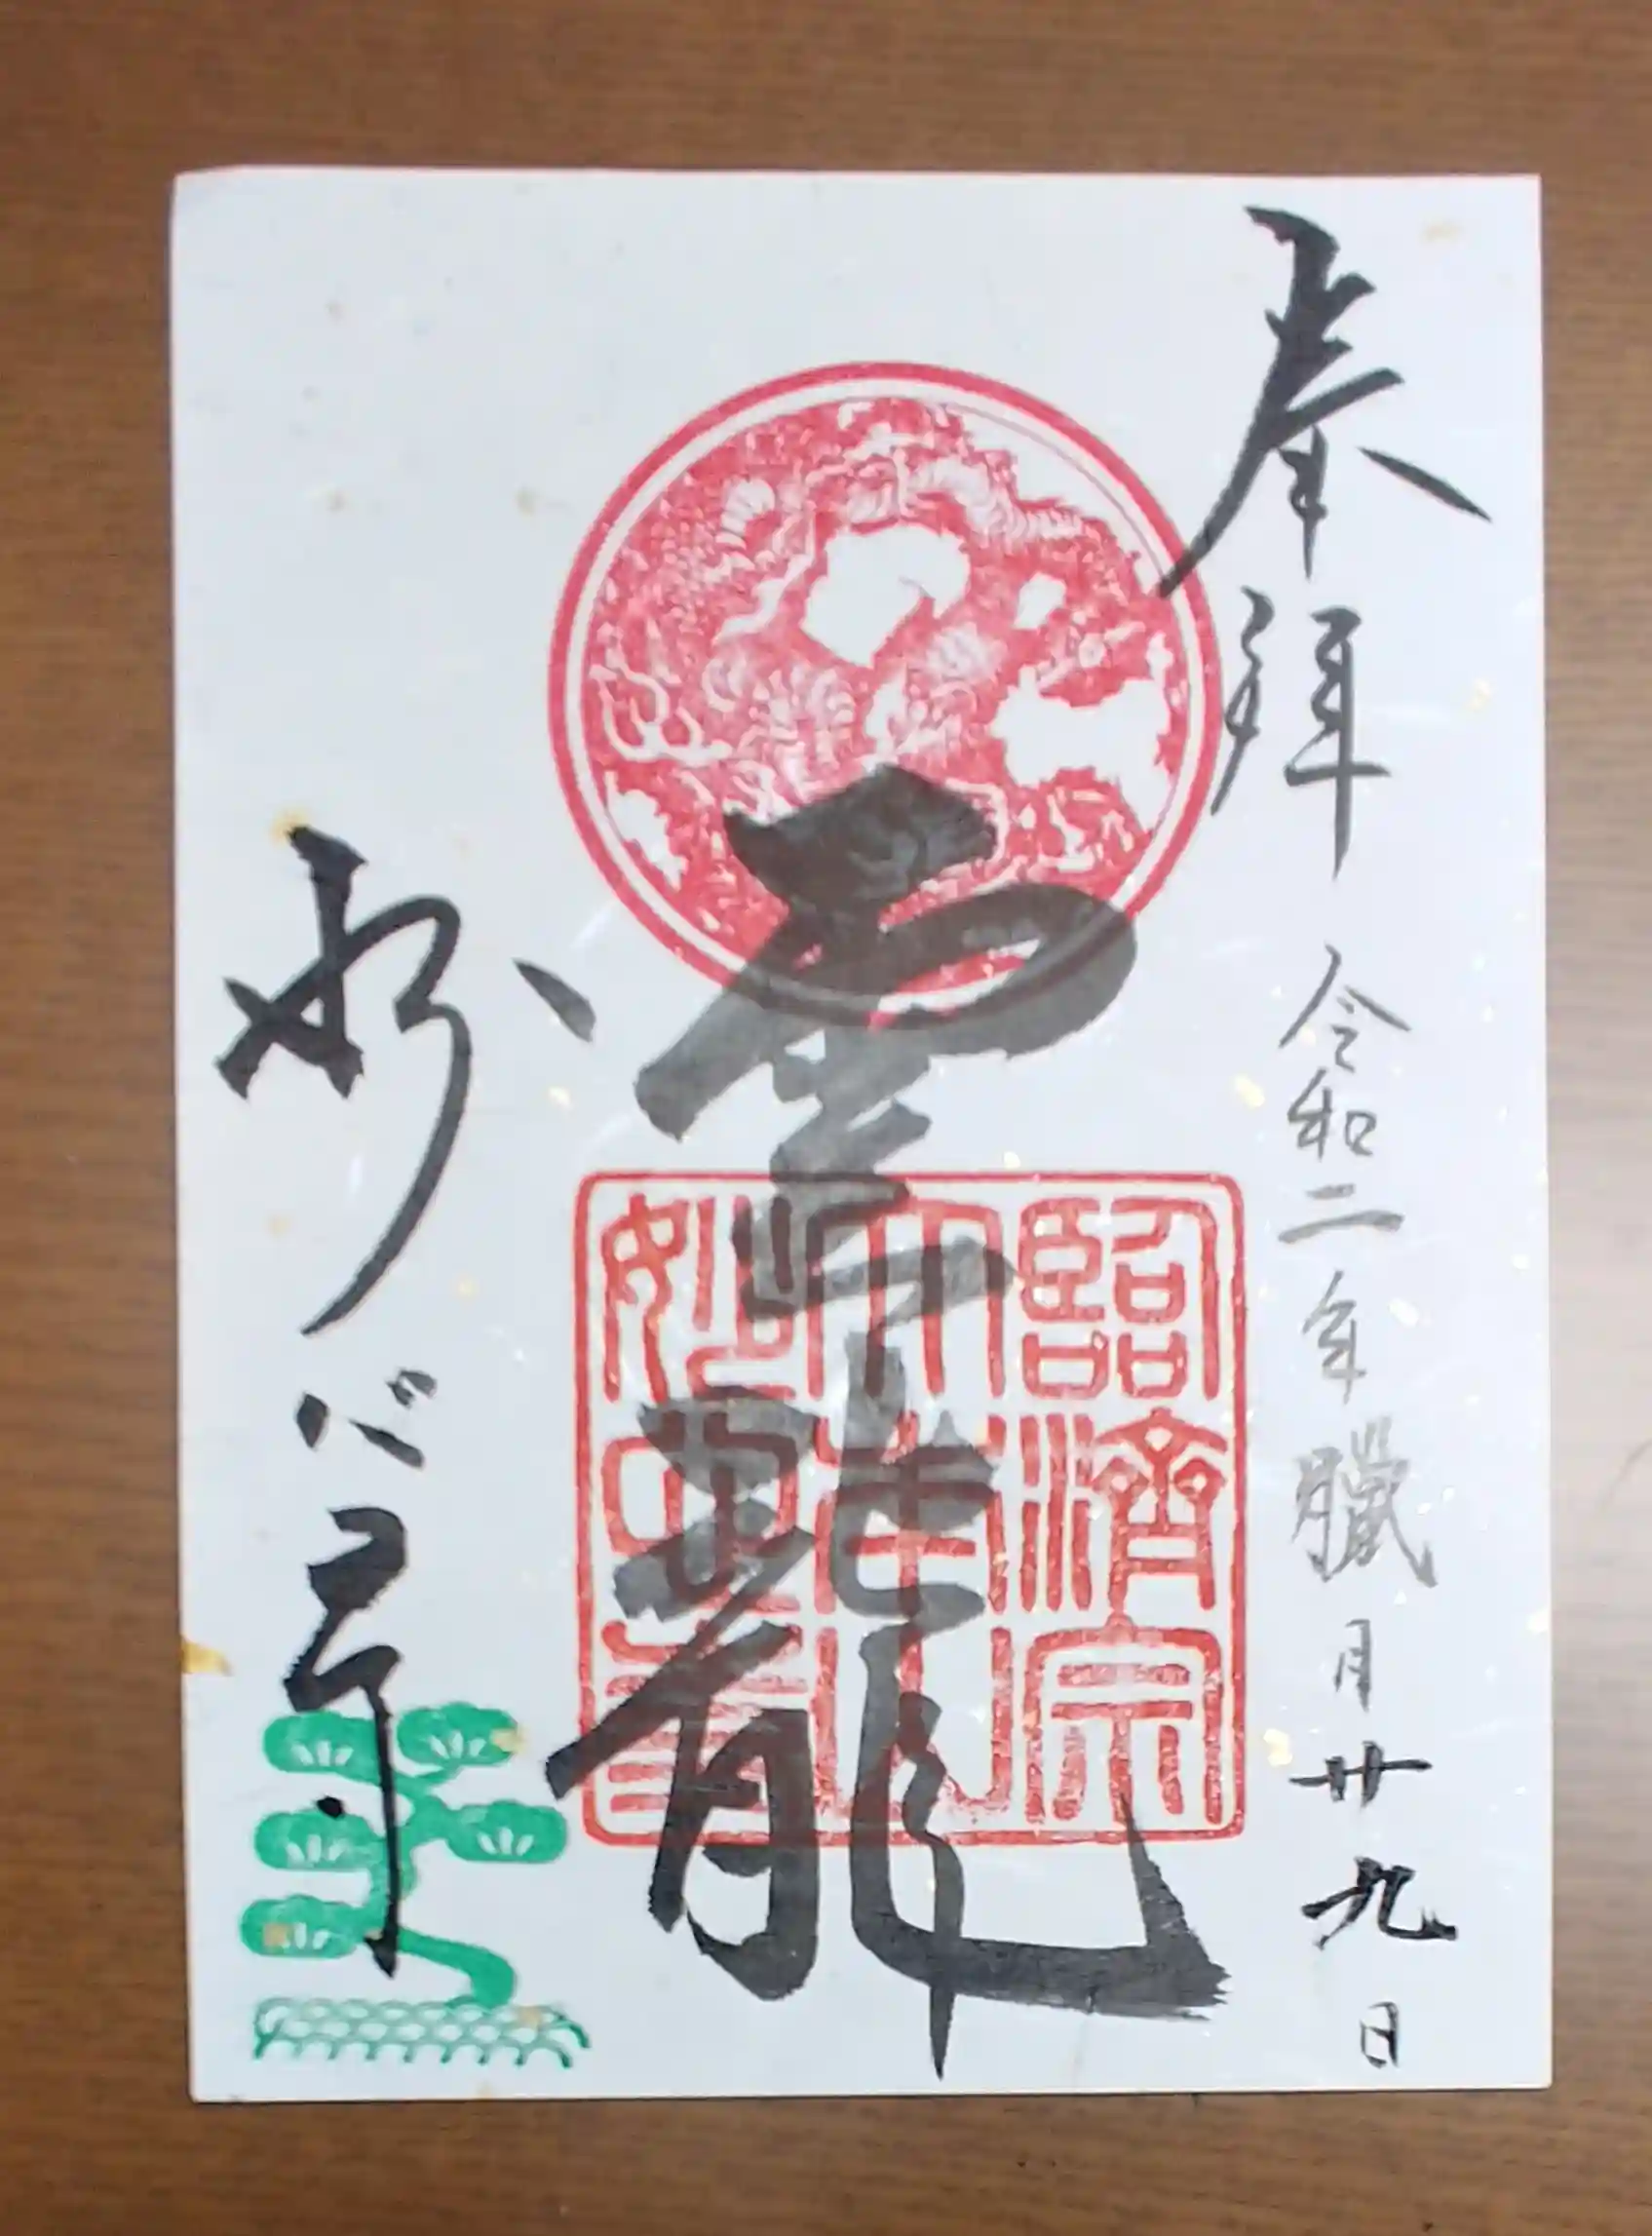 奉拝 令和二年臘月廿九日
雲龍
妙心寺
臨済宗
大本山
妙心寺